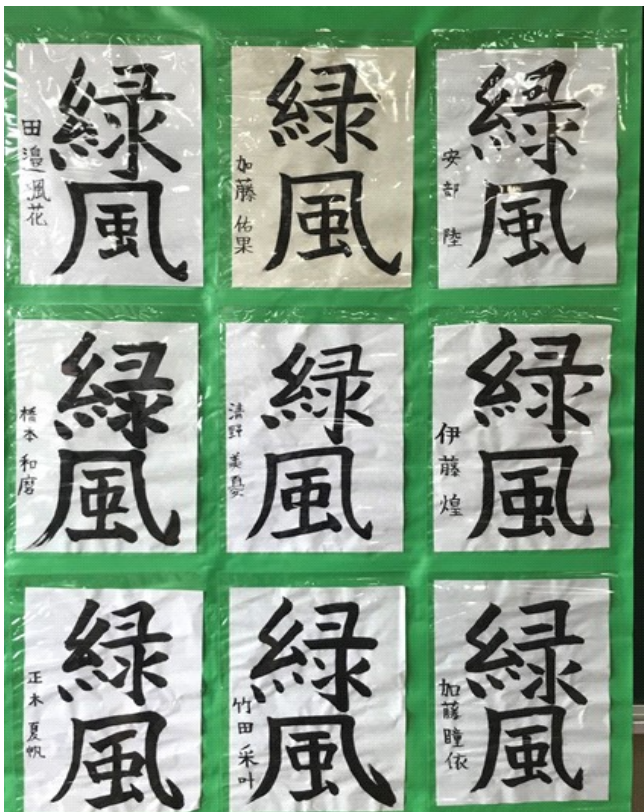 緑風
田邉颯花
緑風
加藤佑果
緑風
安部陸
緑風
橋本和磨
緑風
清野美夏
緑風
伊藤煌
緑風
正木夏帆
緑風
竹田采叶
緑風
加藤瞳依